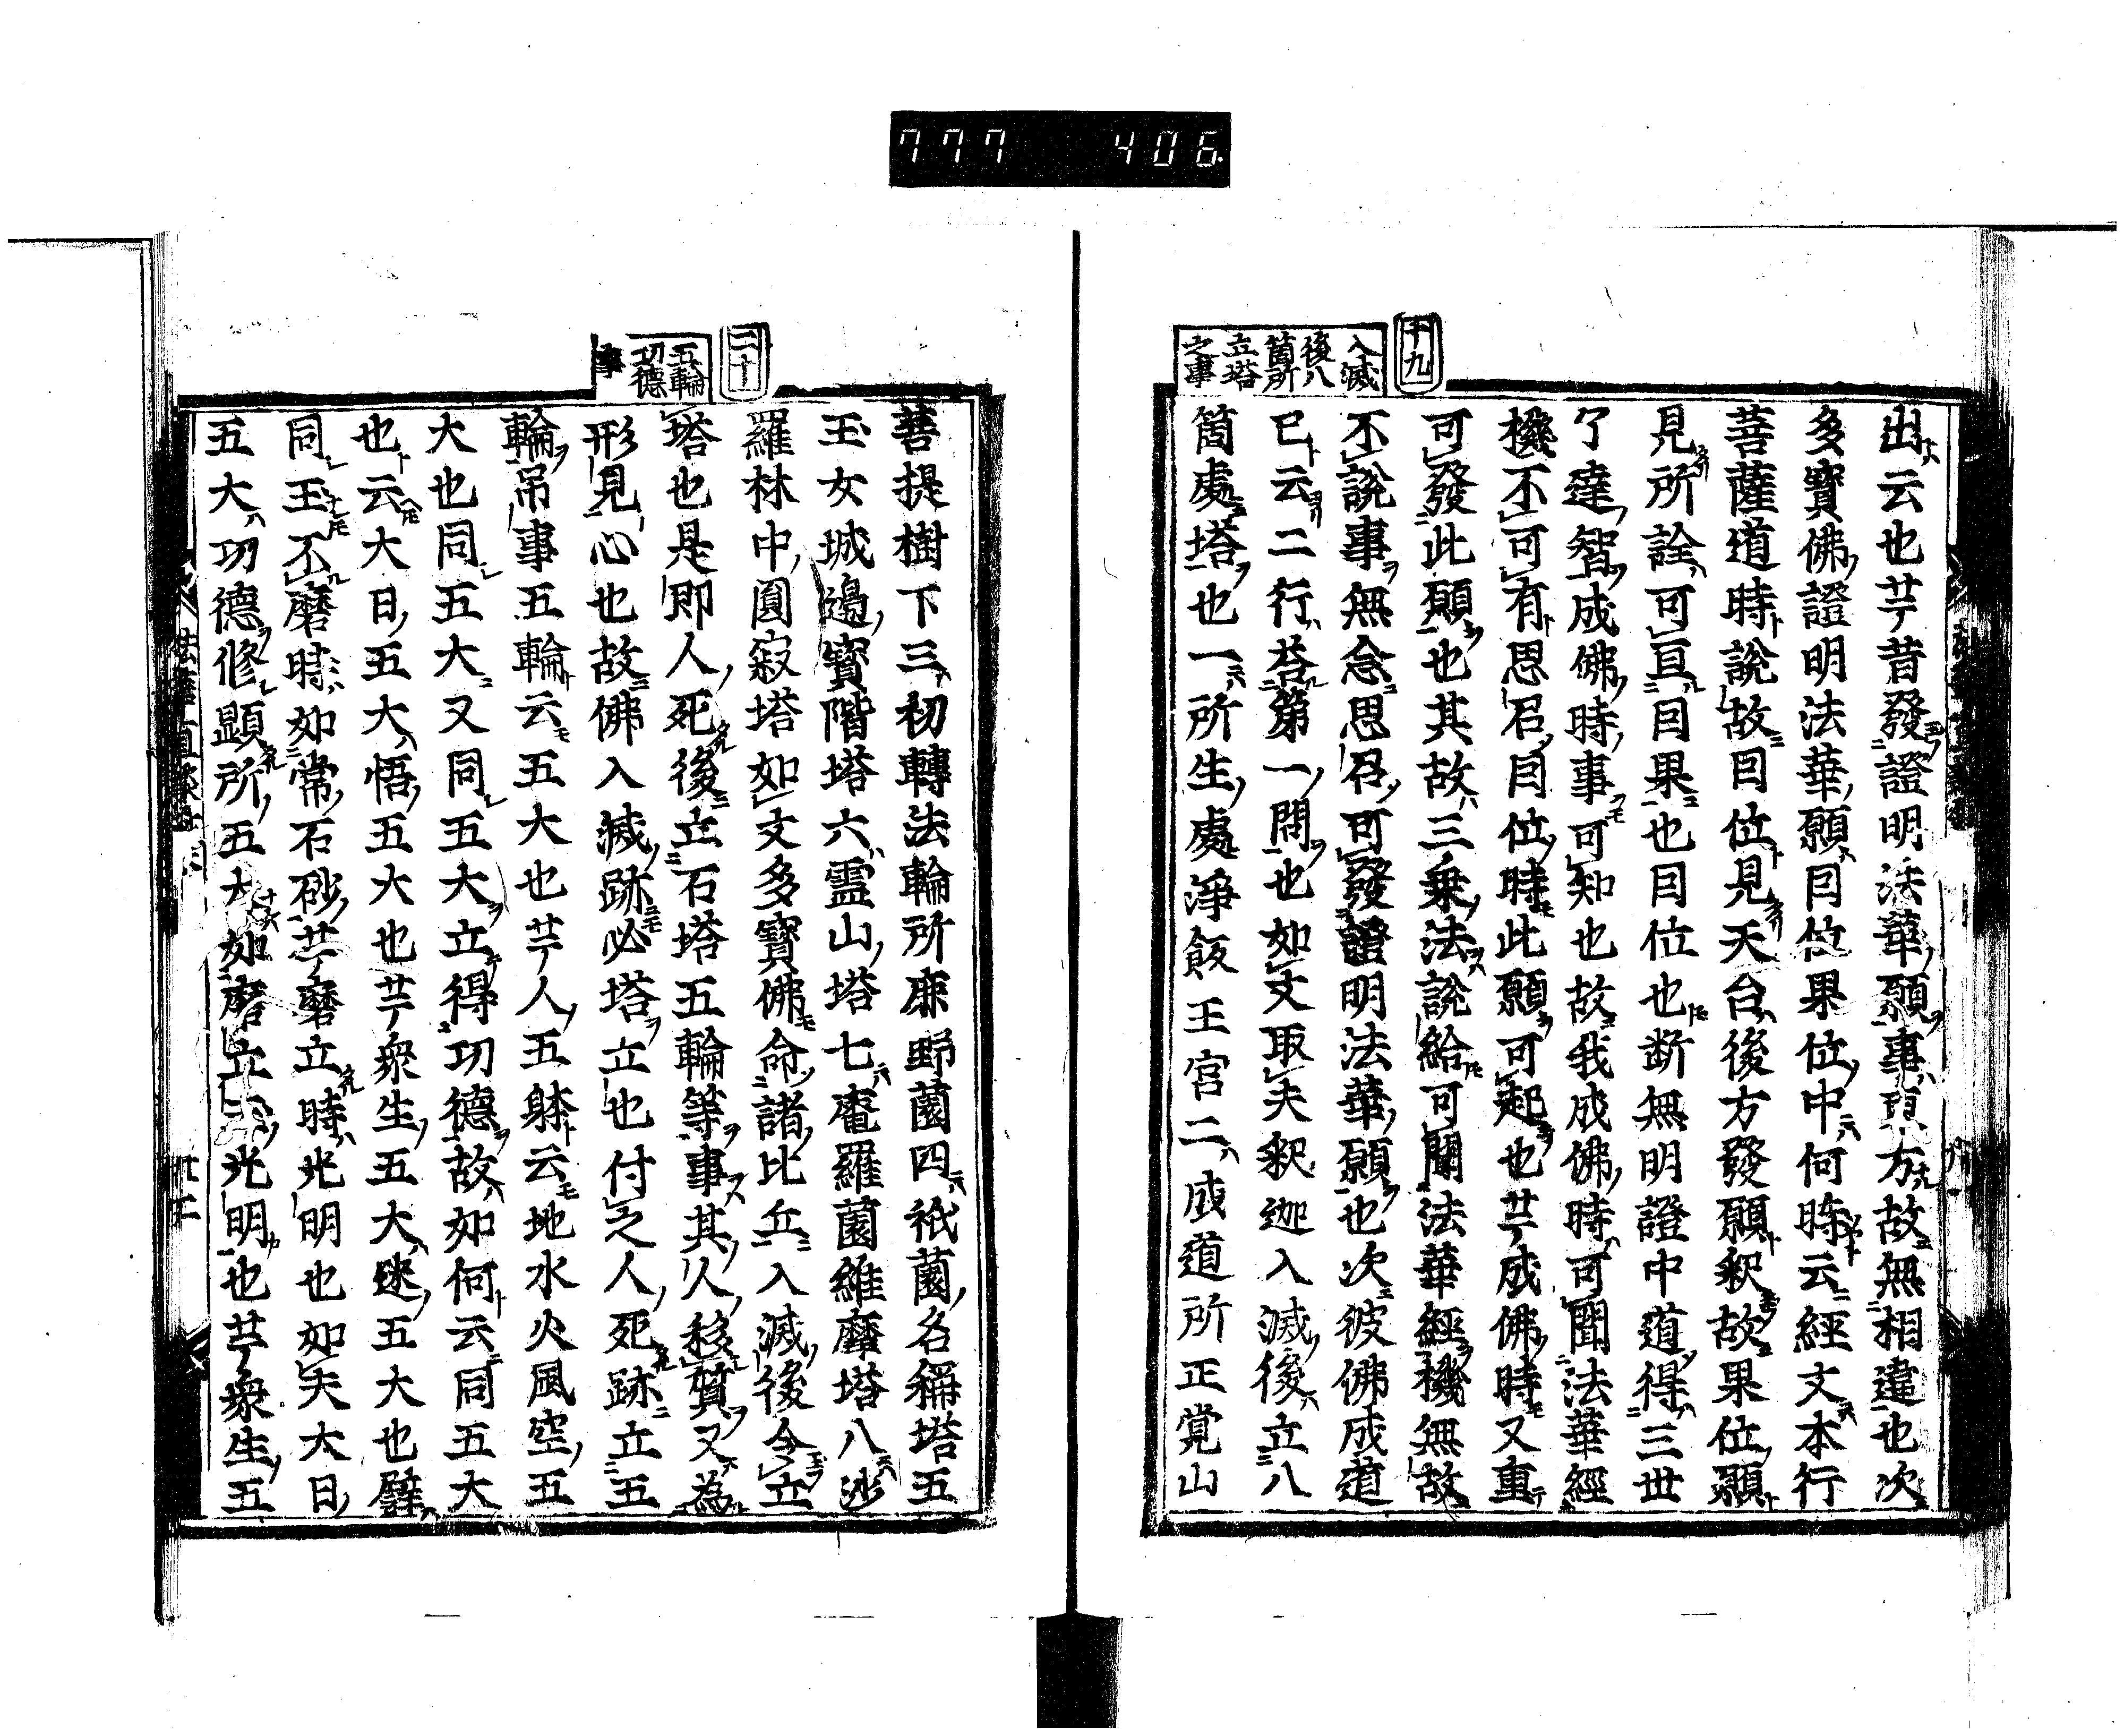 777 406
十九
入滅
後八
箇所
立塔
之事
出云也𦬇昔發證明法華願事頂方故無相違也次
多寳佛證明法華願因位果位中何時云經文本行
菩薩道時説故因位見天台後方發願釈故果位願
見所詮可亘因果也因位也断無明證中道得三世
了達智成佛時事可知也故我成佛時可聞法華經
機不可有思召因位時此願可起也𦬇成佛時又重
可發此願也其故三乗法説給可聞法華經機無故
不説事無念思召可發證明法華願也次彼佛成道
已云二行荅第一問也如文取夫釈迦入滅後立八
箇處塔也一所生處淨飯王宮二成道所正覚山
二十
五輪
功德
事
菩提樹下三初轉法輪所鹿野薗四祇薗名稱塔五
玉女城邉寳階塔六霊山塔七菴羅薗維摩塔八沙
羅林中圓寂塔如文多寳佛命諸比丘入滅後令立
塔也是即人死後立石塔五輪等事其人移質又為
形見心也故佛入滅跡必塔立也付之人死跡立五
輪吊事五輪云五大也𦬇人五躰云地水火風空五
大也同五大又同五大立得功德故如何云同五大
也云大日五大悟五大也𦬇衆生五大迷五大也譬
同玉不磨時如常石砂𦬇磨立時光明也如夫大日
五大功德修顕所五大如磨立玉光明也𦬇衆生五
法華直談